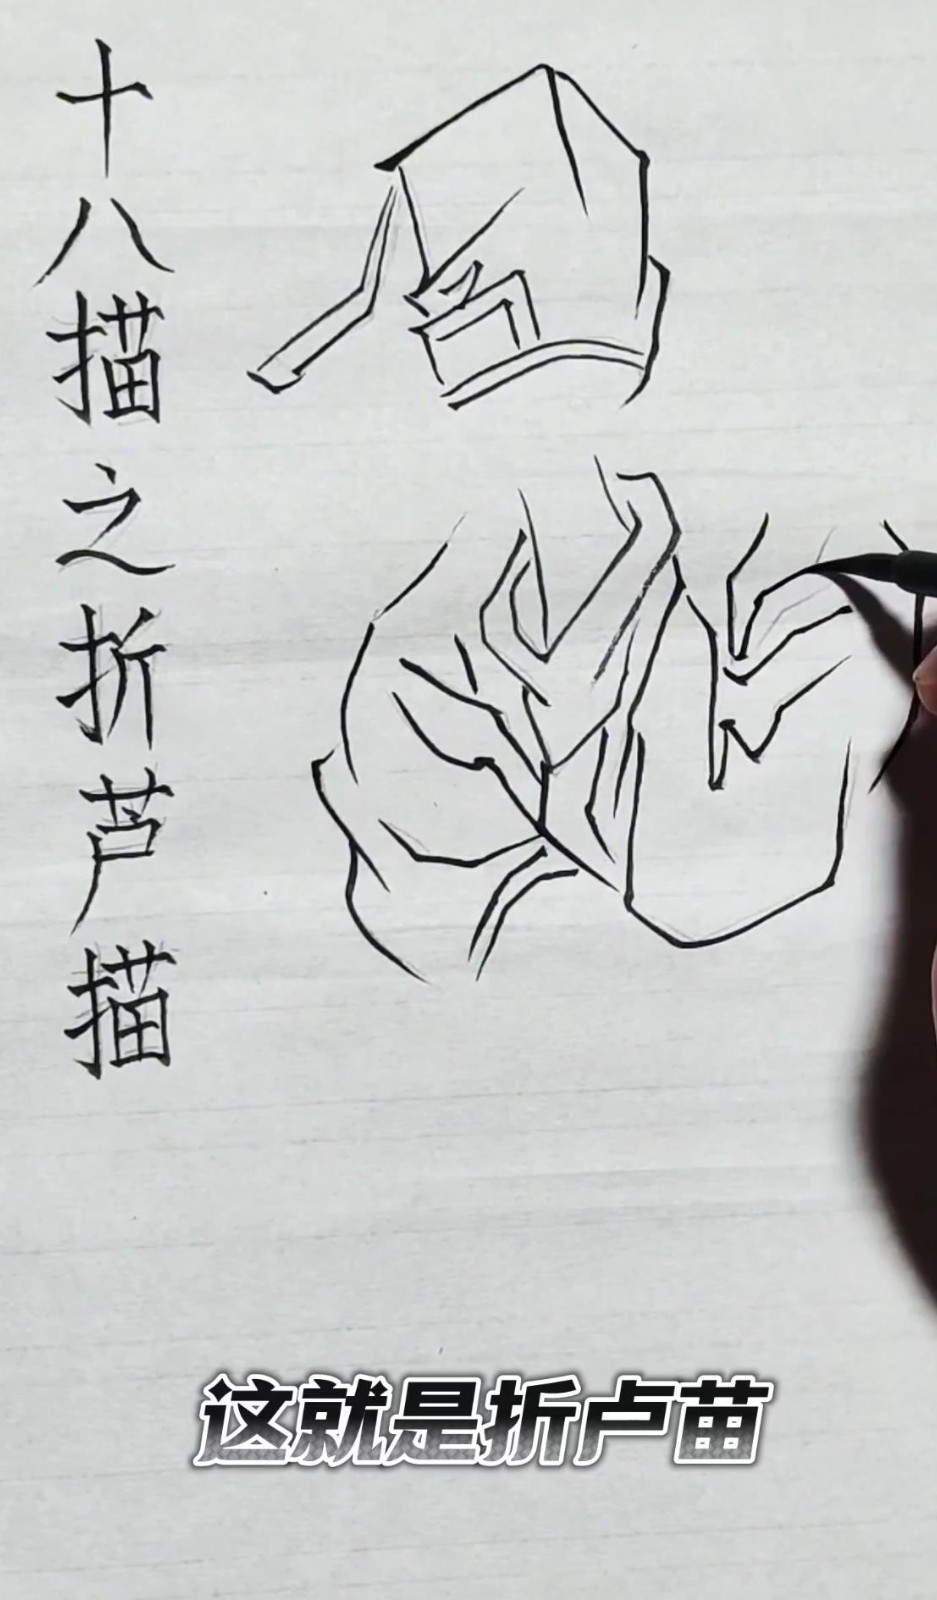 十八描之折芦描
这就是折卢苗